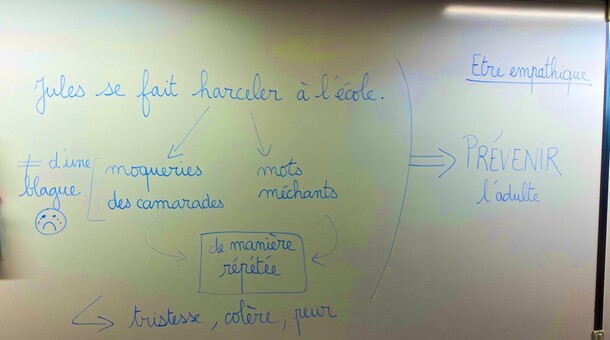 Jules se fait harceler à l'école.
≠ d'une
blague
moqueries
des camarades
mots
méchants
de manière
répétée
tristesse, colère, peur
Etre empathique
PRÉVENIR
l'adulte